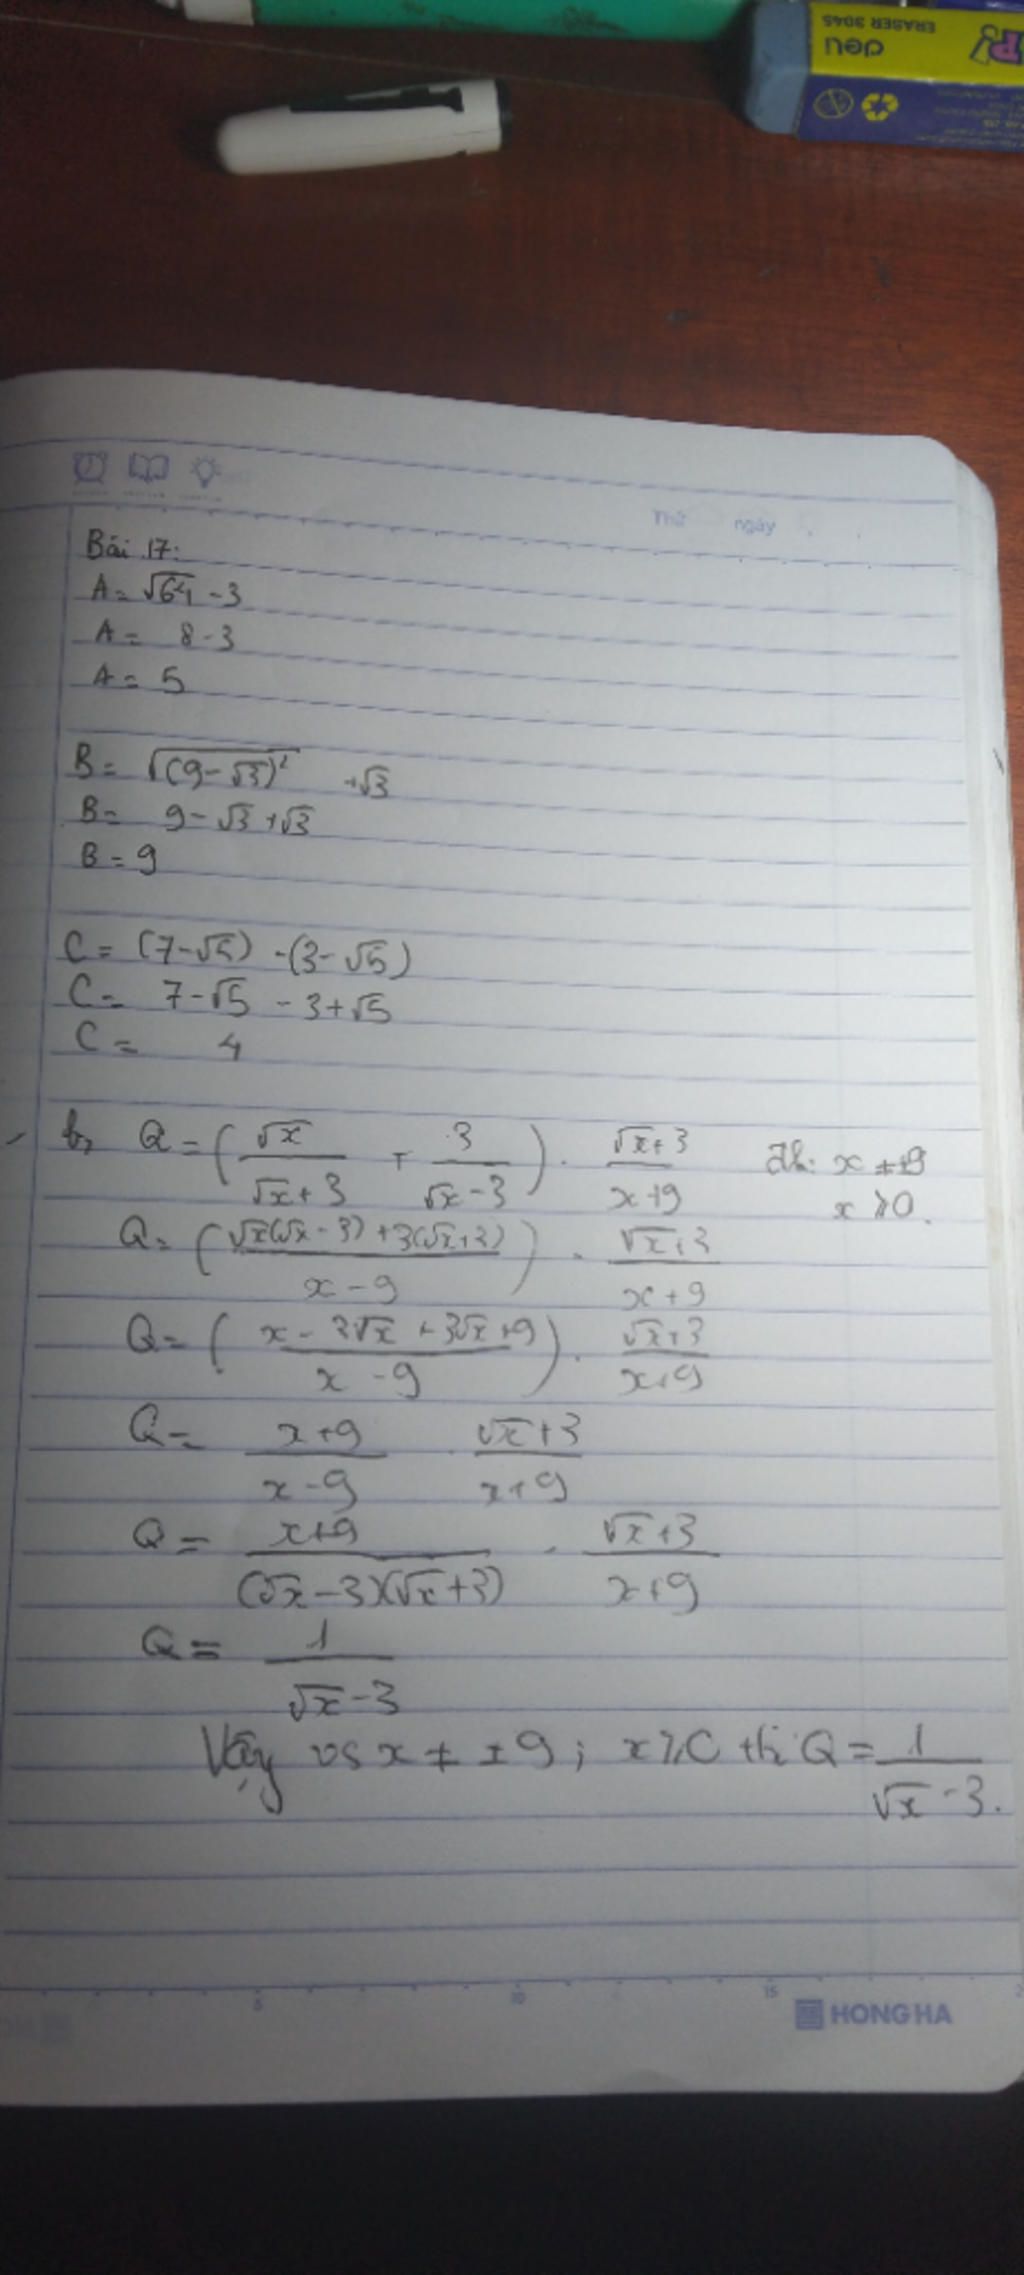 ERASER 3045
deli
Thứ ngày
Bài 17:
A = √64 - 3
A = 8 - 3
A = 5
B = √(9-√3)² +√3
B = 9 - √3 + √3
B = 9
C = (7-√5) - (3-√5)
C = 7-√5 - 3+√5
C = 4
b, Q = (√x/(√x+3) + 3/(√x-3)) . (√x+3)/(x+9) Đk: x ≠ ±9
x ≥ 0.
Q = ((√x(√x-3) + 3(√x+3))/(x-9)) . (√x+3)/(x+9)
Q = ((x - 3√x + 3√x + 9)/(x-9)) . (√x+3)/(x+9)
Q = (x+9)/(x-9) . (√x+3)/(x+9)
Q = (x+9)/((√x-3)(√x+3)) . (√x+3)/(x+9)
Q = 1/(√x-3)
Vậy vs x ≠ ±9; x ≥ 0 thì Q = 1/(√x-3).
5 10 15
HONG HA